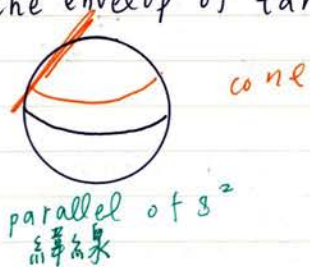 the envelop of tan
cone
parallel of S²
緯線